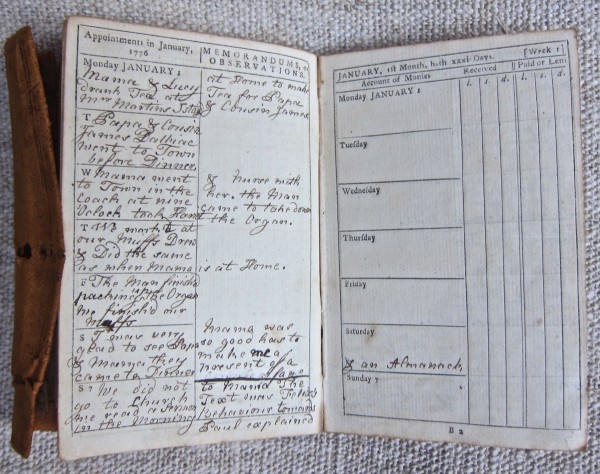 Appointments in January,
1776
Monday JANUARY 1
Mama & Lucy
drank Tea at
Mrs Martins I stay
T Papa & Cousin
James Dalbiac
went to Town
before Dinner.
W Mama went
to Town in the
Coach at nine
Oclock took Hannah
T We at
our Muffs Drew
& Did the same
as when Mama
F The Man finish'd
packing up the Organ
we finish'd our
Muffs
S I was very
glad to see Papa
& Mama they
came to Dinner
S 7 We did not
go to Church
we read a Sermon
in the Morning
MEMORANDUMS, or
OBSERVATIONS.
at Home to make
Tea for Papa
& Cousin James
& Nurse with
her. the Man
came to take down
the Organ.
is at Home.
Mama was
so good has to
make me a
present of a
to Mama The
Text was
behaviour towards
Paul explained
JANUARY, 1st Month, hath xxxi Days. [Week 1]
Account of Monies Received Paid or Lent
l. s. d. l. s. d.
Monday JANUARY 1
Tuesday
Wednesday
Thursday
Friday
Saturday
& an Almanack
Sunday 7
B 2